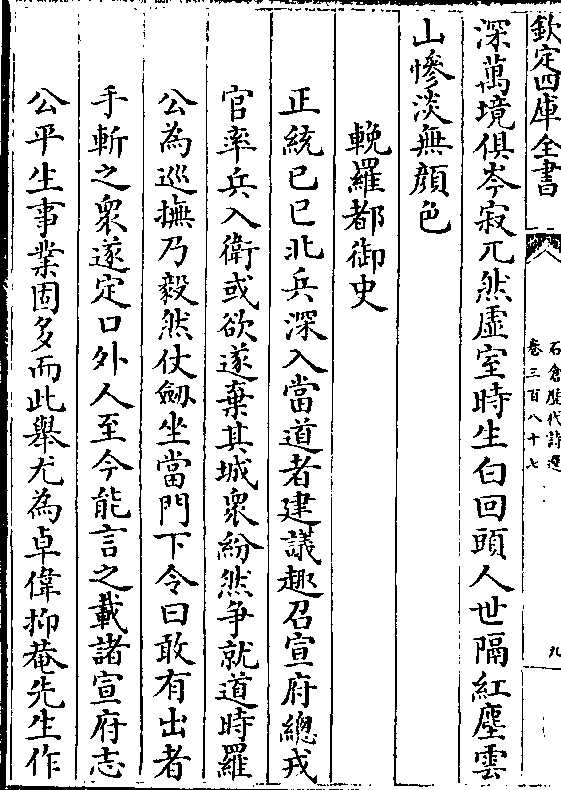 欽定四庫全書
石倉歷代詩選
卷三百八十七
九
深萬境俱岑寂兀然虛室時生白回頭人世隔紅塵雲
山慘淡無顏色
輓羅都御史
正統已巳北兵深入當道者建議趣召宣府總戎
官率兵入衛或欲遂棄其城衆紛然爭就道時羅
公為巡撫乃毅然仗劒坐當門下令曰敢有出者
手斬之衆遂定口外人至今能言之載諸宣府志
公平生事業固多而此舉尤為卓偉抑菴先生作